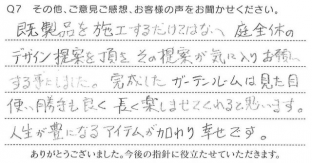 Q7 その他、ご意見ご感想、お客様の声をお聞かせください。
既製品を施工するだけではなく、庭全体の
デザイン提案を頂き その提案が気に入りお願い
する事としました。完成したガーデンルームは見た目
使い勝手も良く 長く楽しませてくれると思います。
人生が豊になるアイテムが加わり幸せです。
ありがとうございました。今後の指針に役立たせていただきます。